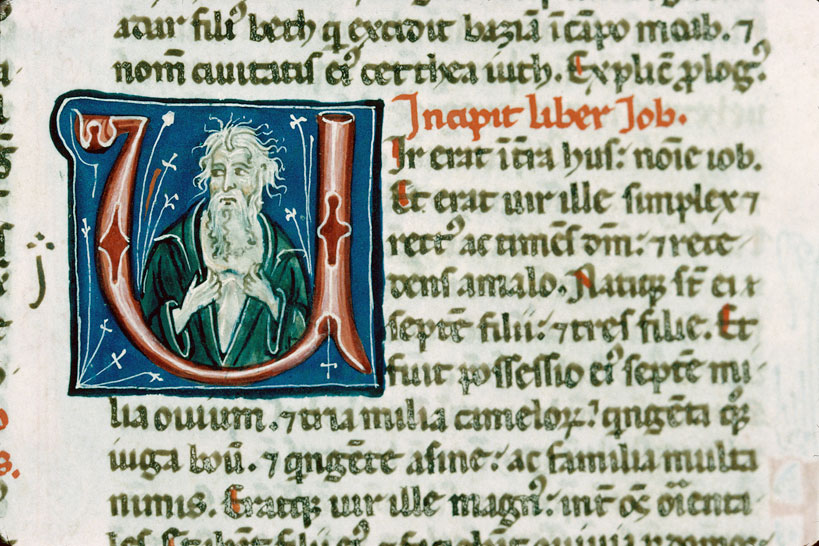 atur fili⁹ beth q̄ excidit baziā ī cāpo moab. ⁊
nom̄ ciuitatis ei⁹ cetthea iuth. Explic̄ ꝓlog⁹.
Incipit liber Job.
UIr erat ī t̄ra hus: noīe iob.
Et erat uir ille simplex ⁊
rect⁹ ac timēs dm̄: ⁊ rece
dens a malo. Natiqꝫ st̄ ei
septē filii: ⁊ tres filie. Et
fuit possessio ei⁹ septē mi
lia ouium. ⁊ tria milia cameloꝝ: q̄ngēta qꝫ
iuga boū. ⁊ q̄ngēte asine: ac familia multa
nimis. Eratqꝫ uir ille magn⁹: int̄ oīs oīenta
les